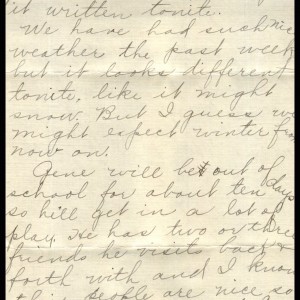 it written tonite.
We have had such nice
weather the past week
but it looks different
tonite, like it might
snow. But I guess we
might expect winter from
now on.
Gene will be out of
school for about ten days
so hill get in a lot of
play. He has two or three
friends he visits back &
forth with and I know
people are nice so